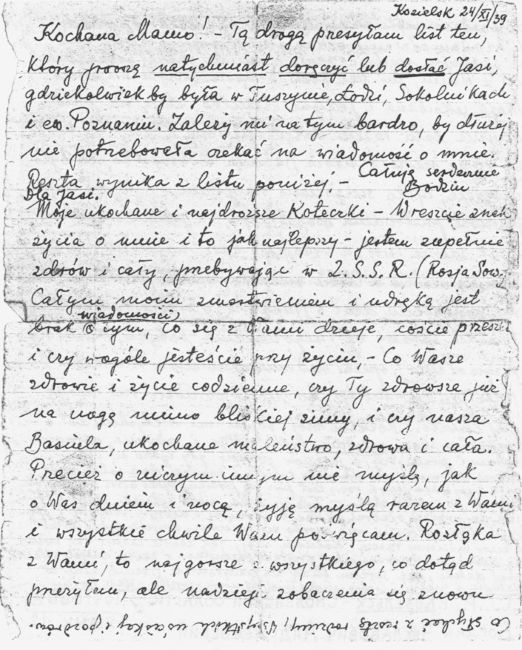 Kozielsk 24/XI/39
Kochana Mamo! - Tą drogą przesyłam list ten,
który proszę natychmiast doręczyć lub dosłać Jasi,
gdziekolwiek by była w Tuszynie, Łodzi, Sokolnikach
i ew. Poznaniu. Zależy mi na tym bardzo, by dłużej
nie potrzebowała czekać na wiadomość o mnie.
Reszta wynika z listu poniżej. - Całuję serdecznie
Bodzin
Dla Jasi.
Moje ukochane i najdroższe Koteczki - Wreszcie znak
życia o mnie i to jak najlepszy - jestem zupełnie
zdrów i cały, przebywając w Z.S.S.R. (Rosja Sow.
Całym moim zmartwieniem i udręką jest
brak wiadomości o tym, co się z Wami dzieje, coście przeszły
i czy wogóle jesteście przy życiu, - Co Wasze
zdrowie i życie codzienne, czy Ty zdrowsza już
na nogę mimo bliskiej zimy, i czy nasza
Basiula, ukochane maleństwo, zdrowa i cała.
Przecież o niczym innym nie myślę, jak
o Was dniem i nocą, żyję myślą razem z Wami
i wszystkie chwile Wam poświęcam. Rozłąka
z Wami, to najgorsze z wszystkiego, co dotąd
przeżyłem, ale nadzieję zobaczenia się znowu
Co słychać z resztą rodziny, Wszystkich uściskaj i pozdrów.